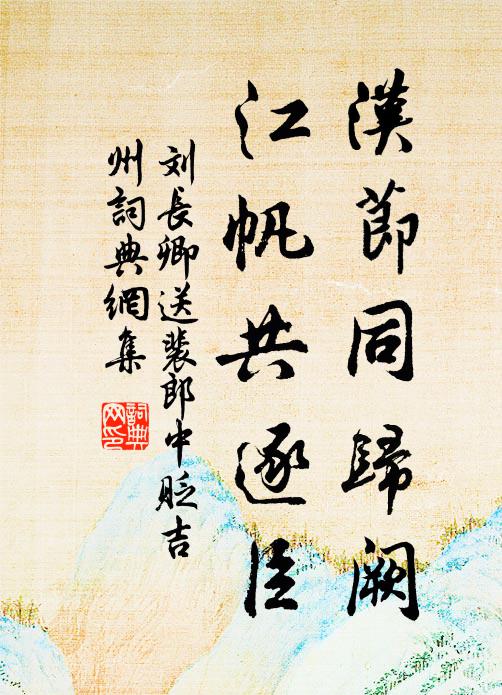 漢節同歸闕
江帆共逐臣
刘長卿送裴郎中貶吉
州詞典網集
詞典
网印